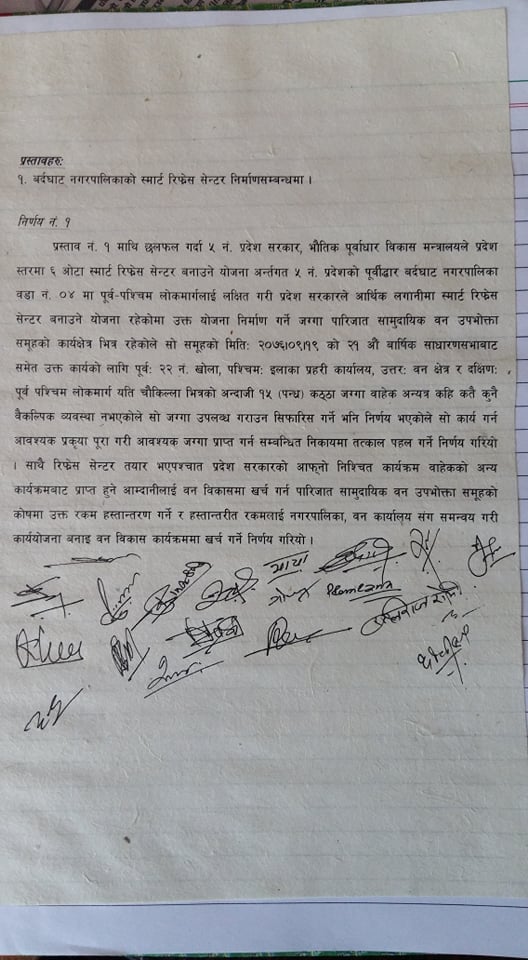 प्रस्तावहरुः
१. बर्दघाट नगरपालिकाको स्मार्ट रिफ्रेस सेन्टर निर्माणसम्बन्धमा ।
निर्णय नं. १
प्रस्ताव नं. १ माथि छलफल गर्दा ५ नं. प्रदेश सरकार, भौतिक पूर्वाधार विकास मन्त्रालयले प्रदेश
स्तरमा ६ ओटा स्मार्ट रिफ्रेस सेन्टर बनाउने योजना अर्न्तगत ५ नं. प्रदेशको पूर्वीद्धार बर्दघाट नगरपालिका
वडा नं. ०४ मा पूर्व-पश्चिम लोकमार्गलाई लक्षित गरी प्रदेश सरकारले आर्थिक लगानीमा स्मार्ट रिफ्रेस
सेन्टर बनाउने योजना रहेकोमा उक्त योजना निर्माण गर्ने जग्गा पारिजात सामुदायिक वन उपभोक्ता
समूहको कार्यक्षेत्र भित्र रहेकोले सो समूहको मितिः २०७६।०९।१९ को २१ औं बार्षिक साधारणसभाबाट
समेत उक्त कार्यको लागि पूर्वः २२ नं. खोला, पश्चिमः इलाका प्रहरी कार्यालय, उत्तरः वन क्षेत्र र दक्षिणः
पूर्व पश्चिम लोकमार्ग यति चौकिल्ला भित्रको अन्दाजी १५ (पन्ध्र) कठ्ठा जग्गा वाहेक अन्यत्र कहि कतै कुनै
वैकल्पिक व्यवस्था नभएकोले सो जग्गा उपलब्ध गराउन सिफारिस गर्ने भनि निर्णय भएकोले सो कार्य गर्न
आवश्यक प्रकृया पूरा गरी आवश्यक जग्गा प्राप्त गर्न सम्बन्धित निकायमा तत्काल पहल गर्ने निर्णय गरियो
। साथै रिफ्रेस सेन्टर तयार भएपश्चात प्रदेश सरकारको आफ्नो निश्चित कार्यक्रम वाहेकको अन्य
कार्यक्रमबाट प्राप्त हुने आम्दानीलाई वन विकासमा खर्च गर्न पारिजात सामुदायिक वन उपभोक्ता समूहको
कोषमा उक्त रकम हस्तान्तरण गर्ने र हस्तान्तरीत रकमलाई नगरपालिका, वन कार्यालय संग समन्वय गरी
कार्ययोजना बनाइ वन विकास कार्यक्रममा खर्च गर्ने निर्णय गरियो ।
माया